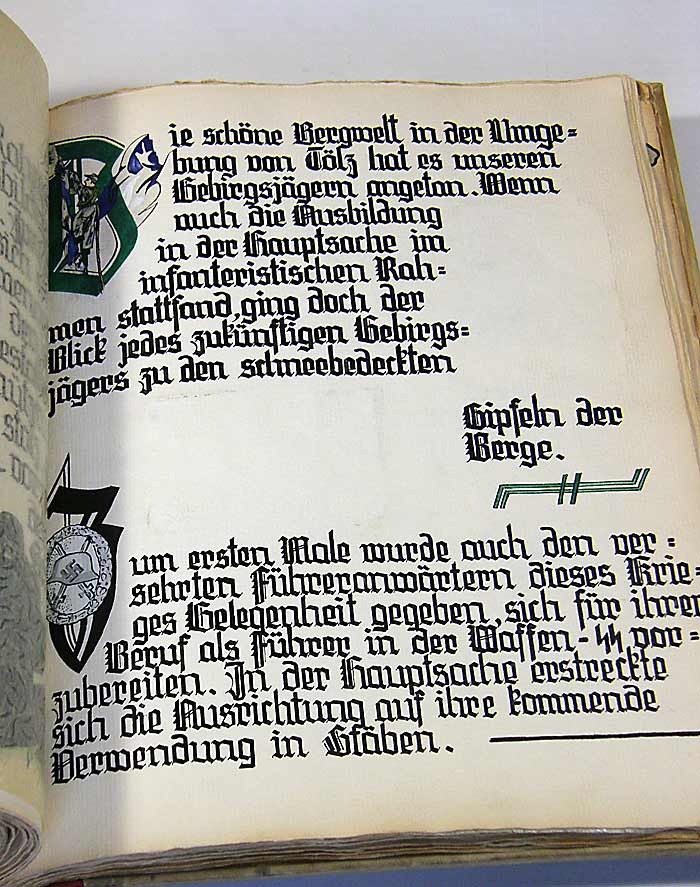 Die schöne Bergwelt in der Umge=
bung von Tölz hat es unseren
Gebirgsjägern angetan. Wenn
auch die Ausbildung
in der Hauptsache im
infanteristischen Rah=
men stattfand, ging doch der
Blick jedes zukünftigen Gebirgs=
jägers zu den schneebedeckten
Gipfeln der
Berge.
Zum ersten Male wurde auch den ver=
sehrten Führeranwärtern dieses Krie=
ges Gelegenheit gegeben, sich für ihren
Beruf als Führer in der Waffen-ᛋᛋ vor=
zubereiten. In der Hauptsache erstreckte
sich die Ausrichtung auf ihre kommende
Verwendung in Stäben.